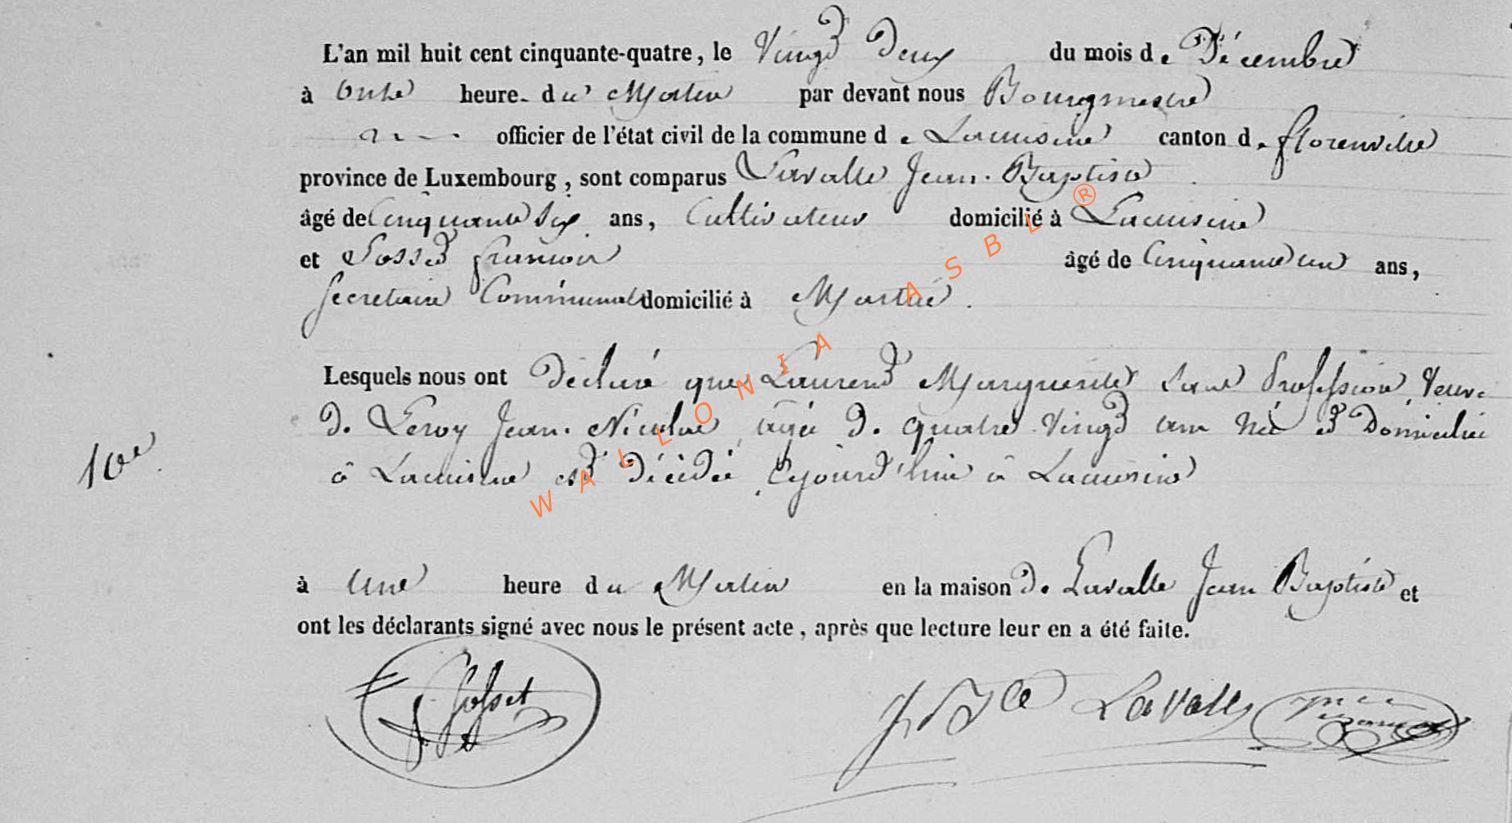 L'an mil huit cent cinquante-quatre, le Vingt Deux du mois de Décembre
à onze heure du Matin par devant nous Bourgmestre
officier de l'état civil de la commune de Lacuisine canton de florenville
province de Luxembourg, sont comparus Lavalle Jean-Baptiste
âgé de Cinquante six ans, Cultivateur domicilié à Lacuisine
et Gosset françois âgé de Cinquante un ans,
Secretaire Communal domicilié à Martué.
Lesquels nous ont Déclaré que Laurent Marguerite sans Profession, Veuve
de Leroy Jean. Nicolas, agée de quatre Vingt ans Né et Domiciliée
10e
à Lacuisine est Décédée, Cejourd'hui à Lacuisine
à une heure du Matin en la maison de Lavalle Jean Baptiste et
ont les déclarants signé avec nous le présent acte, après que lecture leur en a été faite.
Gosset
LaValle
WALLONIA ASBL ®